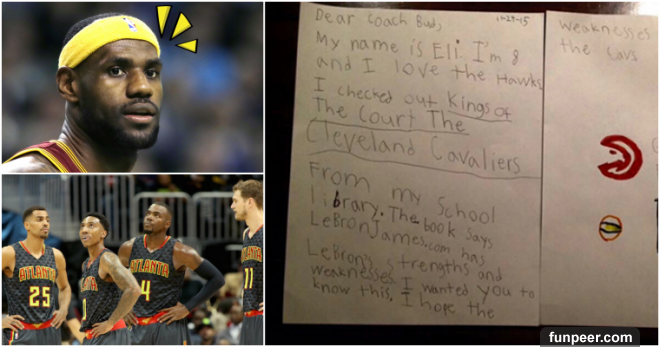 Dear Coach Bud,
11-29-15
My name is Eli. I'm 8
and I love the Hawks
I checked out Kings of
The Court The
Cleveland Cavaliers
From my School
library. The book says
LeBronJames.com has
LeBron's strengths and
weaknesses. I wanted you to
know this. I hope the
Weaknesses
the Cavs
ATLANTA
25
ATLANTA
4
11
funpeer.com